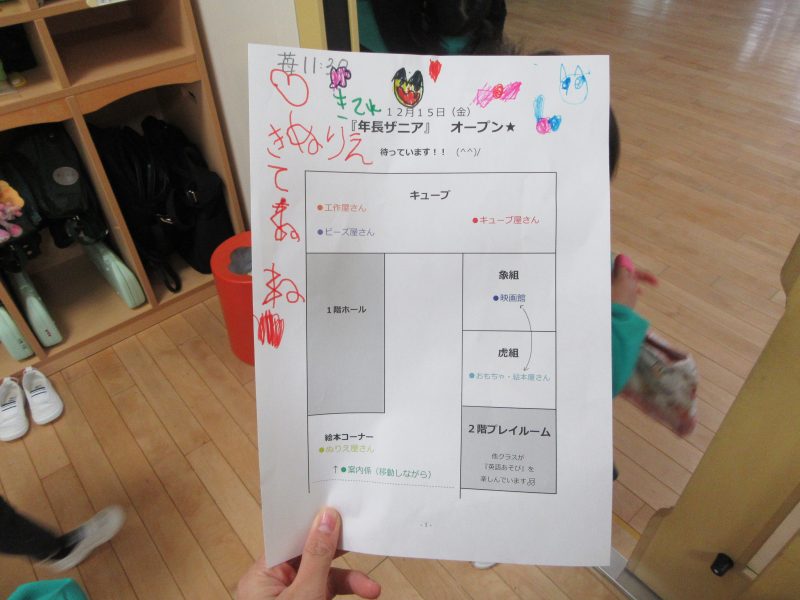 苺11:30
きてね
12月15日（金）
『年長ザニア』　オープン★
ぬりえ
きてね
まってるね
待っています！！　(^^)/
キューブ
●工作屋さん
●キューブ屋さん
●ビーズ屋さん
象組
●映画館
１階ホール
虎組
●おもちゃ・絵本屋さん
絵本コーナー
●ぬりえ屋さん
↑●案内係（移動しながら）
２階プレイルーム
他クラスが
『英語あそび』を
楽しんでいます♬
- 1 -